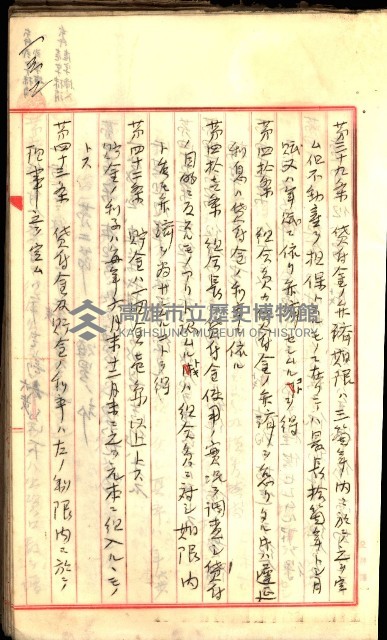 第三十九条 貸付金ノ弁済期限ハ三箇年内ニ於テ之ヲ定
ム但不動産ヲ担保トスルモノニ在リテハ最長拾箇年トシ月
賦又ハ年賦ニ依リ弁済セシムルコトヲ得
第四拾条 組合員カ貸付金ノ弁済ヲ怠リタルトキハ遅延
利息ハ貸付金ノ利率ニ依ル
第四拾壱条 組合長ハ貸付金使用ノ実況ヲ調査シ貸付
ノ目的ニ反スルモノアリト認ムル時ハ組合員ニ対シ期限内
ト雖モ弁済ヲ為サシムルコトヲ得
第四十二条 貯金ハ一口金 以上トス
貯金ノ利子ハ毎年六月末十二月末ニ之ヲ元本ニ組入ルルモノ
トス
第四十三条 貸付金及貯金ノ利率ハ左ノ制限内ニ於テ
理事之ヲ定ム
高雄市立歷史博物館
KAOHSIUNG MUSEUM OF HISTORY